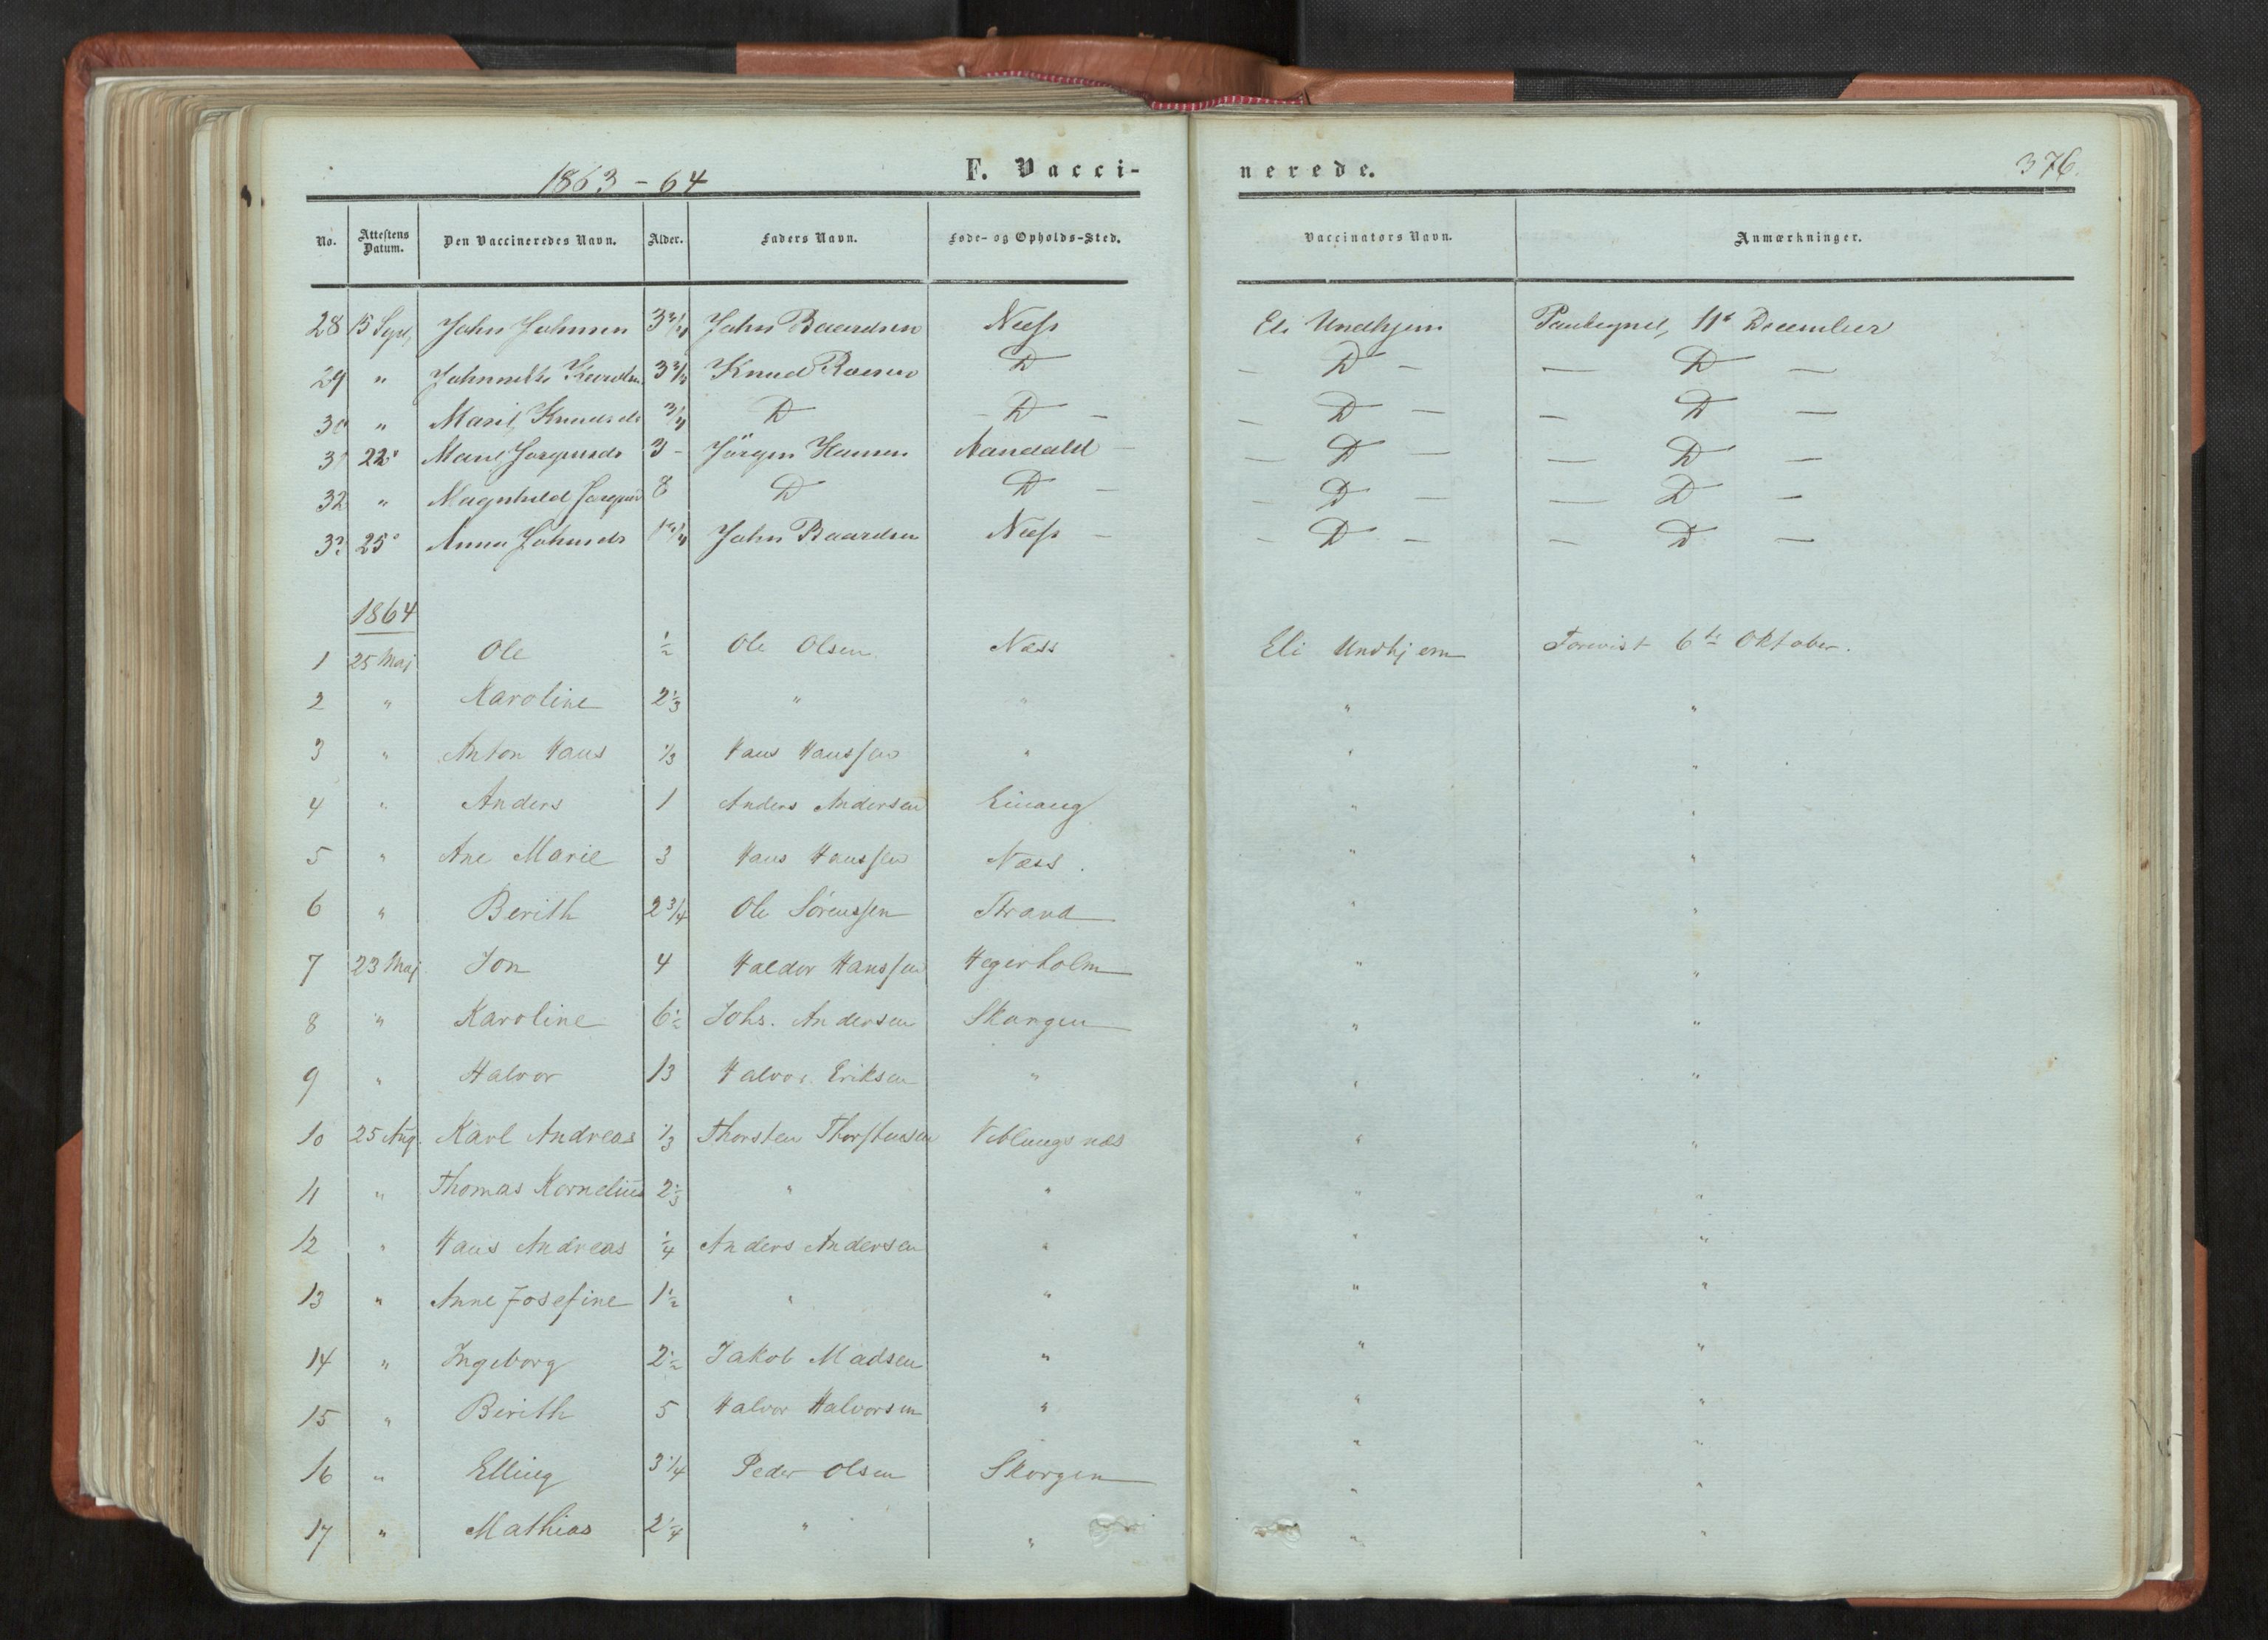 1863-64 F. Vacci-nerede. 376.
No. Attestens Datum. Den Vaccineredes Navn. Alder. Faders Navn. Føde- og Opholds-Sted. Vaccinators Navn. Anmærkninger.
28 15 Sept, John Johnsen 3 3/4 John Baardsen Næss Eli Undhjem 11e December
29 " 3 3/4 Knud D - D - - D -
30 " Marit Knudsdr 3/4 D - D - - D - - D -
31 22e Marit Jørgensdr 3 - Jörgen Hansen Aandald - - D - - D -
32 " Magnhild 8 D D - - D - - D -
33 25e Anna Johnsdr 1 3/4 John Baardsen Næss - - D - - D -
1864
1 25 Maj Ole 1/2 Ole Olsen Næss Eli Undhjem Forevist 6te Oktober.
2 " Karoline 2 1/3 " " " "
3 " Anton Hans 1/3 Hans Hanssen " " "
4 " Anders 1 Anders Andersen Einang " "
5 " Ane Marie 3 Hans Hanssen Næss. " "
6 " Berith 2 3/4 Ole Sörenssen Strand " "
7 23 Maj Jon 4 Haldor Hanssen Hegerholm " "
8 " Karoline 6 1/2 Johs. Andersen Skorgen " "
9 " Halvor 13 Halvor Eriksen " " "
10 25 Aug. Karl Andreas 1/3 Thorsten Thorstensen Veblungsnæs " "
11 " Thomas Kornelius 2 1/3 " " " "
12 " Hans Andreas 1/4 Anders Andersen " " "
13 " Anne Josefine 1 1/2 " " " "
14 " Ingeborg 2 1/2 Jakob Madsen " " "
15 " Berith 5 Halvor Halvorsen " " "
16 " Elling 3 1/4 Peder Olsen Skorgen " "
17 " Mathias 2 1/4 " " " "